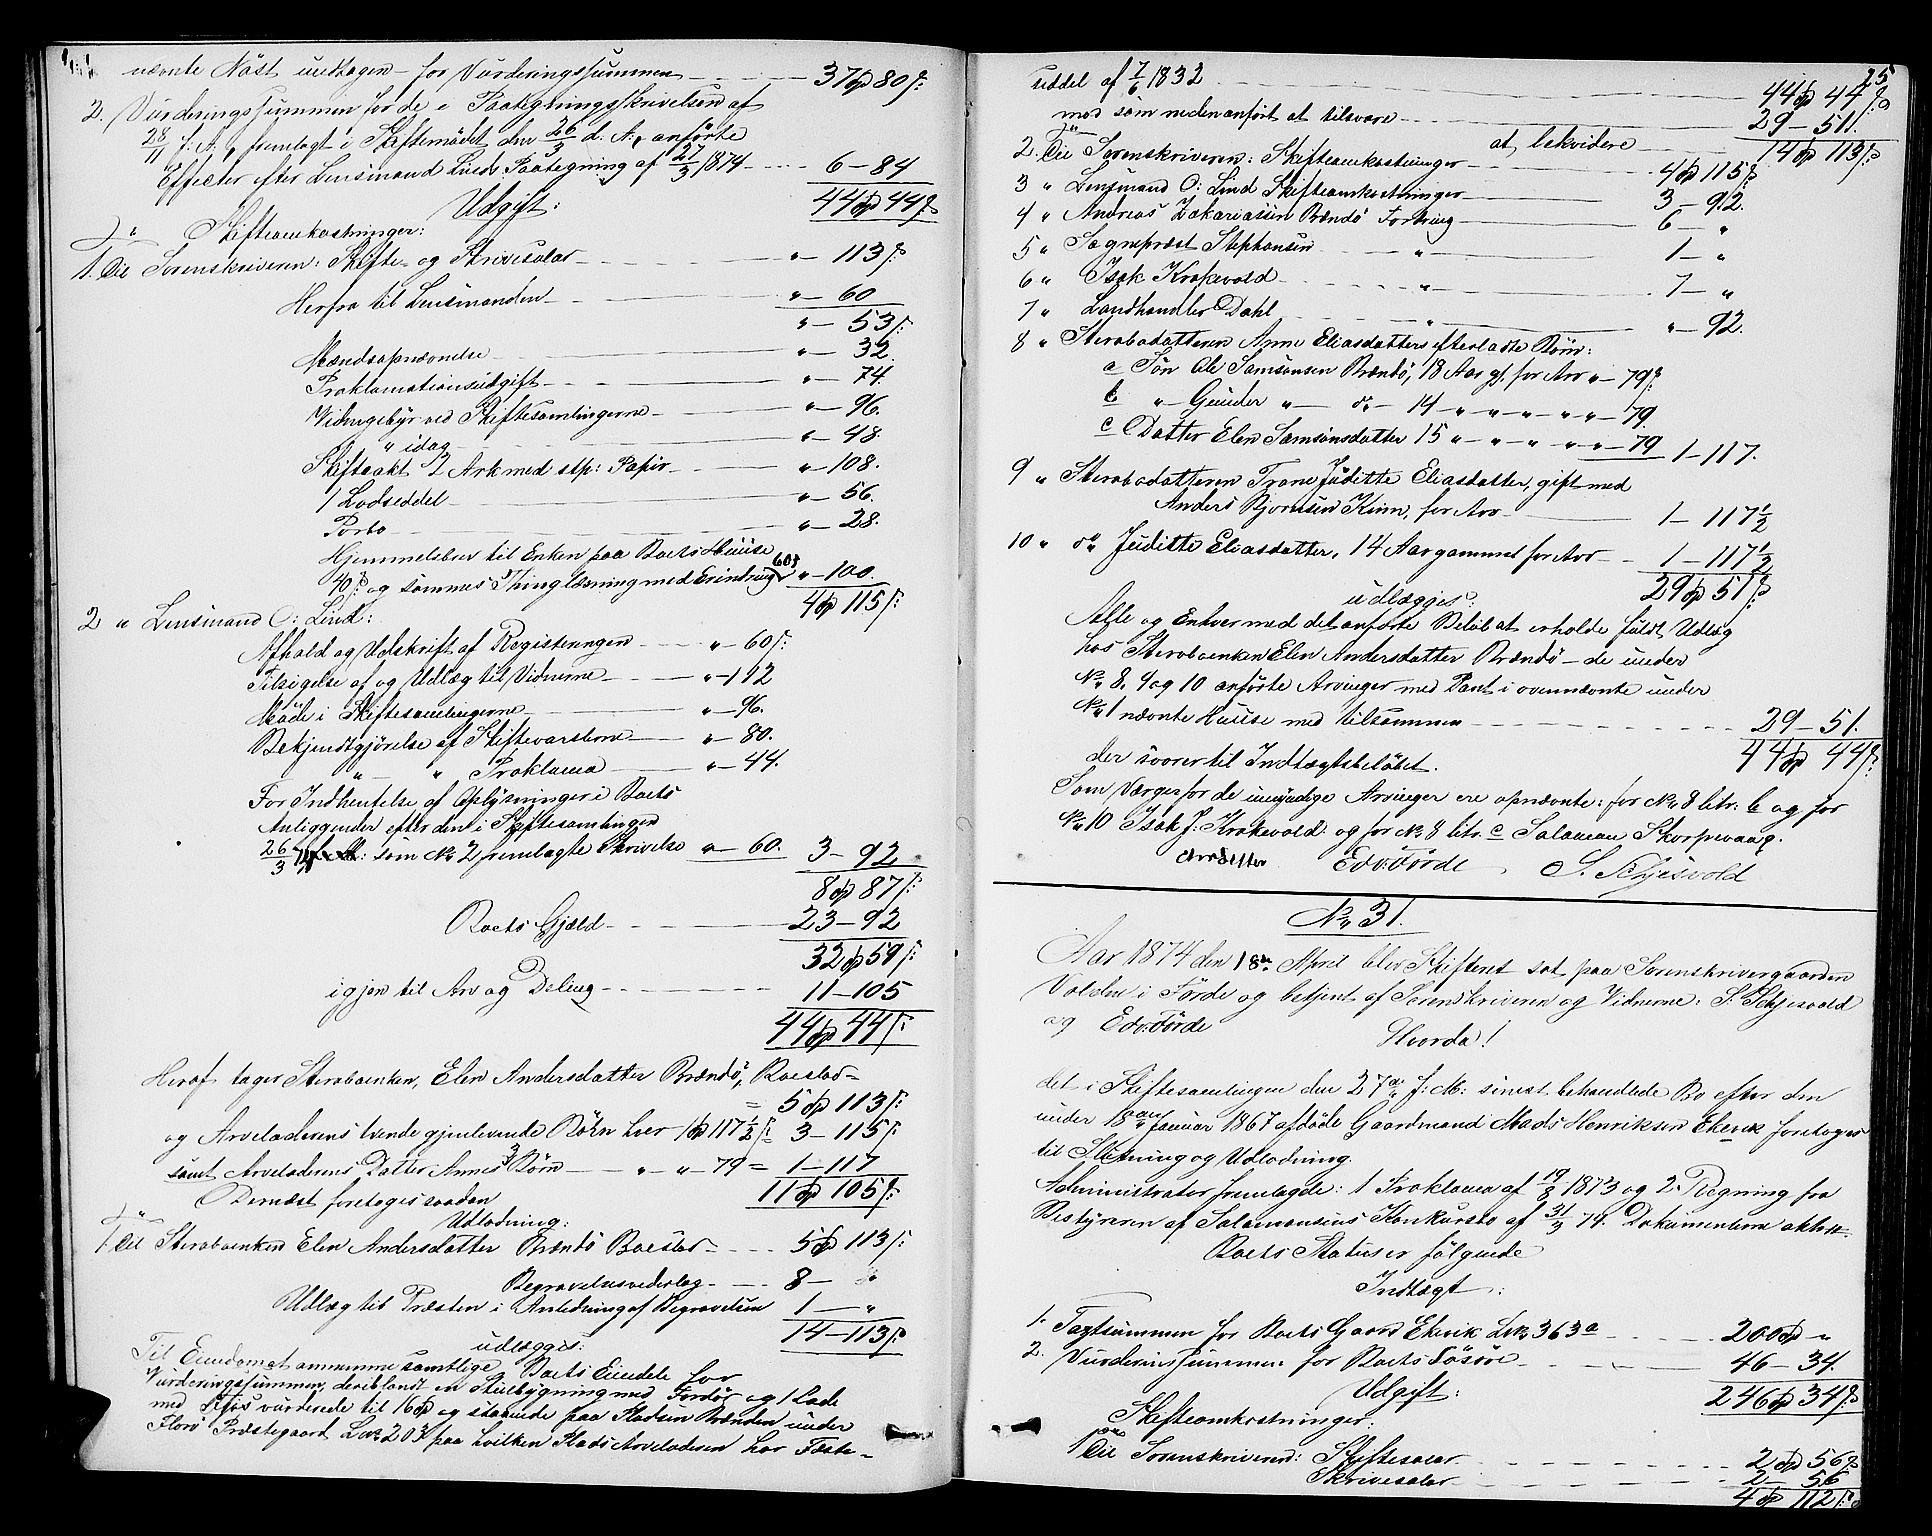 nævnte Nöst undtagen for Vurderingssummen 37 Spd 80 s:
2. Vurderingssummen for de i Paategningsskrivelsen af
28/11 f: A., fremlagt i Skiftemödet den 26/3 d: A., anförte
Effecter efter Lensmand Linds Paategning af 27/3 1874 6 – 84
44 Spd 44 s
Udgift:
Skifteomkostninger:
1. Til Sorenskriveren: Skifte- og Skrivesalar „ – 113 s
Herfra til Lensmanden „ – 60
„ – 53 s:
Mændsopnævnelse „ – 32.
Proklamationsudgift „ – 74.
Vidnegebyr ved Skiftesamlingerne „ – 96.
„ idag „ – 48.
Skifteakt 2 Ark med stp: Papir „ – 108.
1 Lodseddel „ – 56.
Porto „ – 28.
Hjemmelsbrev til Enken paa Boets Huuse
40 s: og sammes Thinglæsning med Erindring 60 s „ – 100.
4 Spd 115 s:
2 „ Lensmand O: Lind:
Afhold og Udskrift af Registeringen „ – 60 s:
Tilsigelse af og Udlæg til Vidnerne „ – 112
Möde i Skiftesamlingerne „ – 96.
Bekjendtgjörelse af Skiftevarslerne „ – 80.
„ – „ Proklama „ – 44.
For Indhentelse af Oplysninger i Boets
Anliggender efter den i Skiftesamlingen
26/3 74 som No 2 fremlagte Skrivelse „ – 60. 3 – 92
8 Spd 87 s:
Boets Gjæld 23 – 92
32 Spd 59 s:
igjen til Arv og Deling 11 – 105
44 Spd 44 s:
Heraf tager Stervboenken, Elen Andersdatter Brændö, Boeslod
= 5 Spd 113 s:
og Arveladerens tvende gjenlevende Börn hver 1 Spd 117 1/2 s: = 3 – 115 s:
samt Arveladerens Datter Annes 3 Börn „ „ 79 = 1 – 117
11 Spd 105 s:
Dernæst foretoges saadan
Udlodning:
1. Til Stervboenken Elen Andersdatter Brændö Boeslod 5 Spd 113 s:
Begravelsesvederlag 8 – „
Udlæg til Præsten i Anledning af Begravelsen 1 – „
14 – 113 s:
udlægges:
Til Eiendomat annamme samtlige Boets Eiendele for
Vurderingssummen, deriblandt en Stuebygning med Fordör og 1 Lade
med Flös vurderede til 16 Spd og staaende paa Pladsen Brænden under
Florö Præstegaard L. No 203 paa hvilken Plads Arveladeren har Fæste-
25
seddel af 7/6 1832 44 Spd 44 s
mod som nedenanfört at tilsvare 29 – 51.
at lekvidere 14 Spd 113 s
2. Til Sorenskriveren: Skifteomkostninger 4 Spd 115 s
3 „ Lensmand O: Lind Skifteomkostninger 3 – 92.
4 „ Andreas Zakariassen Brændö Fordring 6 – „
5 „ Sognepræst Stephansen „ 1 – „
6 „ Isak Krokevold „ 7 – „
7 „ Landhandler Dahl „ „ – 92.
8 „ Stervbodatteren Anne Eliasdatters efterladte Börn:
a Sön Ole Samsonsen Brændö, 18 Aar gl. for Arv „ – 79 s:
b „ – Gunder „ – do – 14 „ „ „ „ „ – 79.
c Datter Elen Samsonsdatter 15 „ „ „ „ „ – 79 1 – 117.
9 „ Stervbodatteren Trane Juditte Eliasdatter, gift med
Anders Bjornsen Kinn, for Arv 1 – 117 1/2
10 „ do Juditte Eliasdatter, 14 Aar gammel for Arv 1 – 117 1/2
29 Spd 51 s
udlægges:
Alle og Enhver med det anförte Belöb at erholde fuldt Udlæg
hos Stervboenken Elen Andersdatter Brændö – de under
No 8, 9 og 10 anförte Arvinger med Pant i ovennævnte under
No 1 nævnte Huuse med tilsammen 29 – 51.
44 Spd 44 s
der svarer til Indtægtsbelöbet.
Som Værger for de umyndige Arvinger ere opnævnte: for No 8 litr: b og for
No 10 Isak J: Krokevold og for No 8 litr. c Salamon Skorpevaag.
Edv: Förde S. Schjesvold
No 31.
Aar 1874 den 18de April blev Skifteret sat paa Sorenskrivergaarden
Volden i Förde og betjent af Sorenskriveren og Vidnerne: S: Schjesvold
og Edv: Förde
Hvorda!
det i Skiftesamlingen den 27de f: M: sinest behandlede Bo efter den
under 18de Januar 1867 afdöde Gaardmand Mads Henriksen Ekevik foretoges
til Slutning og Udlodning.
Administrator fremlagde: 1 Proklama af 19/8 1873 og 2. Regning fra
Bestyreren af Salamonsens Konkursbo af 31/3 74. Dokumenterne akten.
Boets Status er fölgende
Indtægt:
1. Taxtsummen for Boets Gaard Ekevik L No 363a 200 Spd „
2. Vurderingssummen for Boets Lösöre 46 – 34.
246 Spd 34 s
Udgift:
Skifteomkostninger:
1 Til Sorenskriveren: Skiftesalar 2 Spd 56 s
Skrivesalar 2 – 56
4 Spd 112 s: